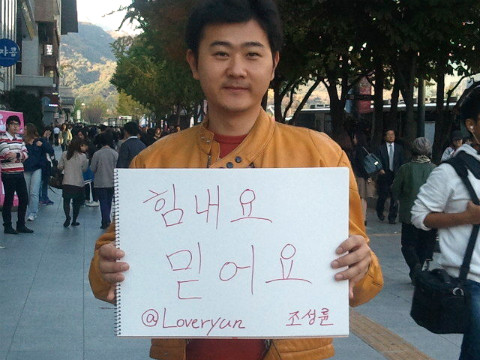 힘내요
믿어요
@Loveryun 조성률